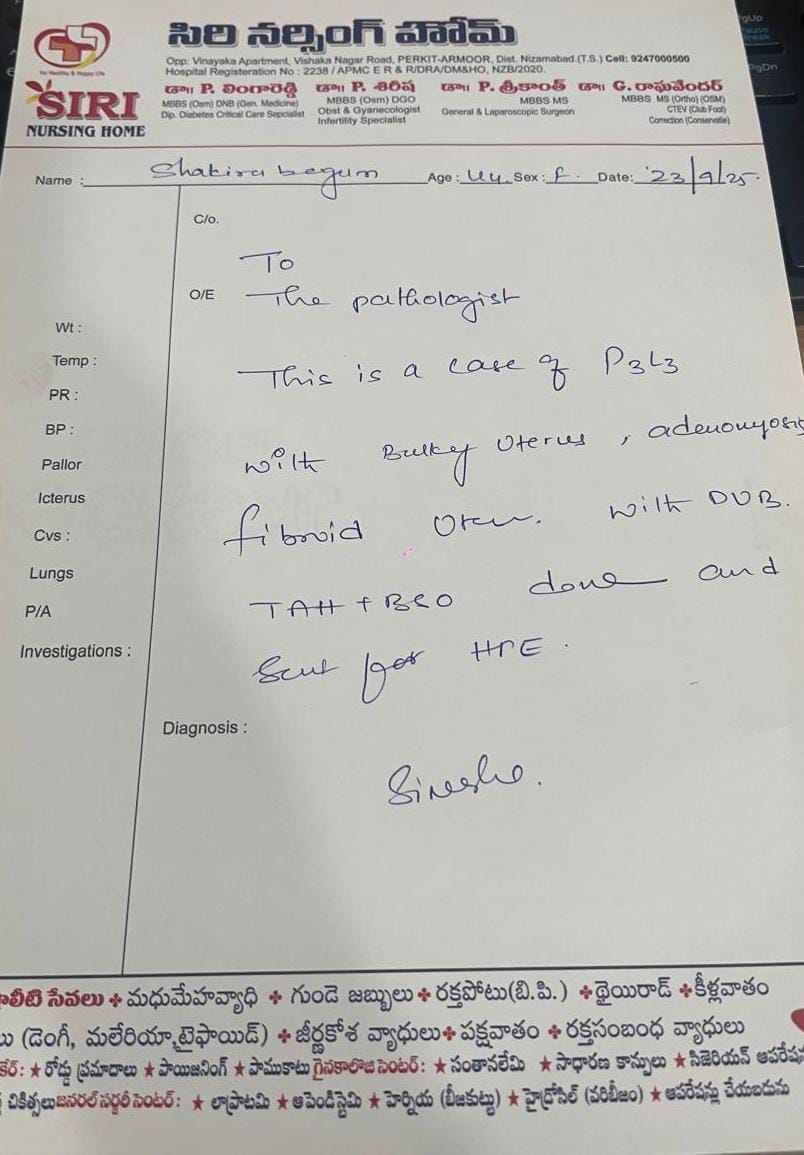 సిరి నర్సింగ్ హోమ్
Opp: Vinayaka Apartment, Vishaka Nagar Road, PERKIT-ARMOOR, Dist. Nizamabad.(T.S.) Cell: 9247000500
Hospital Registeration No : 2238 / APMC E R & R/DRA/DM&HO, NZB/2020.
For Healthy & Happy Life
SIRI
NURSING HOME
డా॥ P. లింగారెడ్డి
MBBS (Osm) DNB (Gen. Medicine)
Dip. Diabetes Critical Care Sepcialist
డా॥ P. శిరీష
MBBS (Osm) DGO
Obst & Gyanecologist
Infertility Specialist
డా॥ P. శ్రీకాంత్
MBBS MS
General & Laparoscopic Surgeon
డా॥ G. రాఘవేందర్
MBBS MS (Ortho) (OSM)
CTEV (Club Foot)
Correction (Conservatie)
Name : Shakira begum Age : 44. Sex : F. Date: 23/9/25.
C/o.
To
O/E The pathologist
Wt :
Temp :
This is a case of P3L3
PR :
BP :
with Bulky Uterus, adenomyosis
Pallor
Icterus
fibroid with DUB.
Cvs :
Lungs
TAH + BSO done and
P/A
Investigations :
Sent for HPE.
Diagnosis :
లిటి సేవలు + మధుమేహవ్యాధి + గుండె జబ్బులు + రక్తపోటు(బి.పి.) + థైయిరాడ్ + కీళ్లవాతం
లు (డెంగీ, మలేరియ్యా,టైఫాయిడ్) + జీర్ణకోశ వ్యాధులు + పక్షవాతం + రక్తసంబంధ వ్యాధులు
కేర్: ★ రోడ్డు ప్రమాదాలు ★ పాయిజనింగ్ ★ పాముకాటు గైనకాలోజి సెంటర్: ★ సంతానలేమి ★ సాధారణ కాన్పులు ★ సిజెరియన్
చికిత్సలు జనరల్ సర్జరీ సెంటర్: ★ లాప్రాటమి ★ అపెండిస్టెమి ★ హెర్నియ (బీజకుట్టు) ★ హైడ్రోసిల్ (వరిబీజం) ★ ఆపరేషన్లు చేయబడును
PgUp
Pause
Break
PgDn